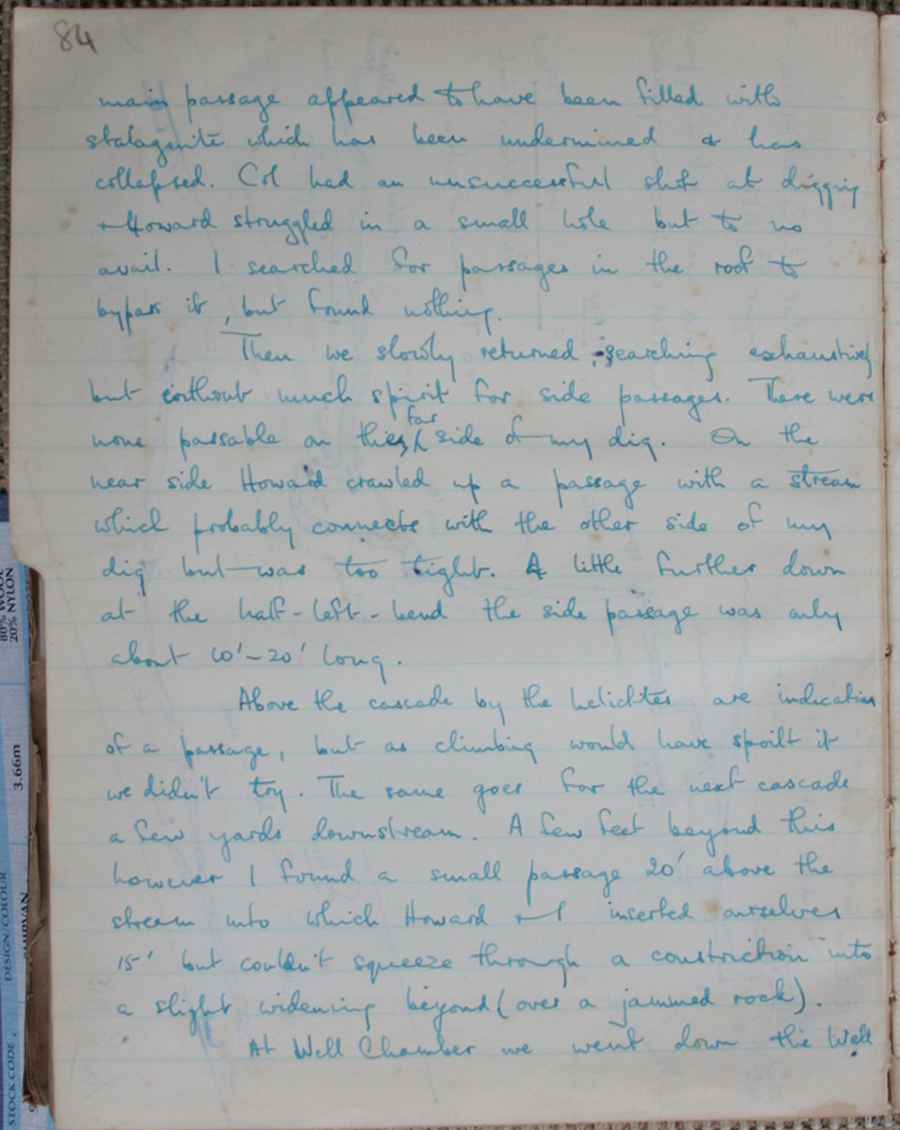 84
main passage appeared to have been filled with
stalagmite which has been undermined & has
collapsed. Col had an unsuccessful shot at digging
+ Howard struggled in a small hole but to no
avail. I searched for passages in the roof to
bypass it, but found nothing.
Then we slowly returned, searching exhaustively
but without much spirit for side passages. There were
none passable on the far side of my dig. On the
near side Howard crawled up a passage with a stream
which probably connects with the other side of my
dig but was too tight. A little further down
at the half-left-bend the side passage was only
about 10'-20' long.
Above the cascade by the helictites are indications
of a passage, but as climbing would have spoilt it
we didn't try. The same goes for the next cascade
a few yards downstream. A few feet beyond this
however I found a small passage 20' above the
stream into which Howard + I inserted ourselves
15' but couldn't squeeze through a constriction into
a slight widening beyond (over a jammed rock).
At Well Chamber we went down the Well
80% WOOL
20% NYLON
3.66m
DESIGN/COLOUR
STOCK CODE.